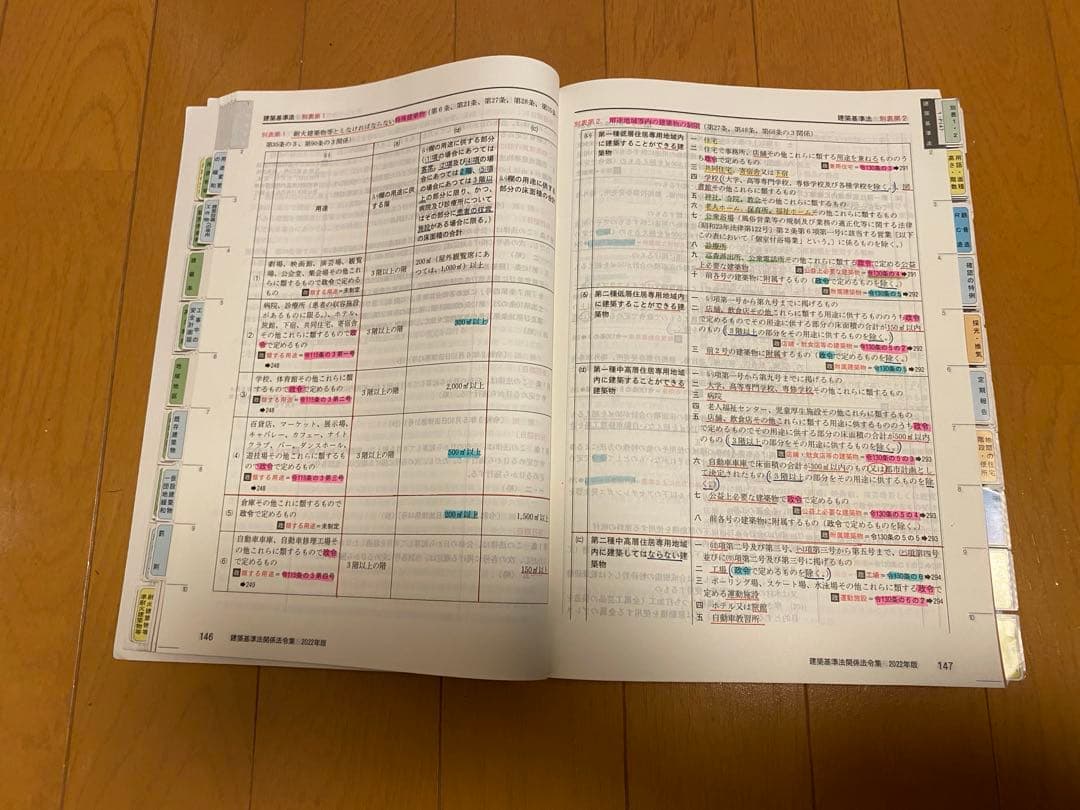 建築基準法 別表第1
別表第1 耐火建築物等としなければならない特殊建築物(第6条、第21条、第27条、第28条、第35条
第35条の3、第90条の3関係)
(い)
(ろ)
(は)
(に)
用途
(い)欄の用途に供する階
(い)欄の用途に供する部分
((1)項の場合にあつては
客席、(2)項及び(4)項の場
合にあつては2階、(5)項
の場合にあつては3階以
上の部分に限り、かつ、
病院及び診療所について
はその部分に患者の収容
施設がある場合に限る。)
の床面積の合計
(い)欄の用途に供する
部分の床面積の合計
(1)
劇場、映画館、演芸場、観覧
場、公会堂、集会場その他これ
らに類するもので政令で定める
もの
類する用途=未制定
3階以上の階
200㎡(屋外観覧席にあ
つては、1,000㎡)以上
(2)
病院、診療所(患者の収容施設
があるものに限る。)、ホテル、
旅館、下宿、共同住宅、寄宿舎
その他これらに類するもので政
令で定めるもの
類する用途=令115条の3第一号
➡248
3階以上の階
300㎡以上
(3)
学校、体育館その他これらに類
するもので政令で定めるもの
類する用途=令115条の3第二号
➡248
3階以上の階
2,000㎡以上
(4)
百貨店、マーケット、展示場、
キャバレー、カフェー、ナイト
クラブ、バー、ダンスホール、
遊技場その他これらに類するも
ので政令で定めるもの
類する用途=令115条の3第三号
➡248
3階以上の階
500㎡以上
(5)
倉庫その他これに類するもので
政令で定めるもの
類する用途=未制定
200㎡以上
1,500㎡以上
(6)
自動車車庫、自動車修理工場そ
の他これらに類するもので政令
で定めるもの
類する用途=令115条の3第四号
➡249
3階以上の階
150㎡以上
146 建築基準法関係法令集 2022年版
建築基準法 別表第2
別表第2 用途地域等内の建築物の制限(第27条、第48条、第68条の3関係)
(い)
第一種低層住居専用地域内
に建築することができる建
築物
一 住宅
二 住宅で事務所、店舗その他これらに類する用途を兼ねるもののう
ち政令で定めるもの
兼用住宅=令130条の3➡291
三 共同住宅、寄宿舎又は下宿
四 学校(大学、高等専門学校、専修学校及び各種学校を除く。)、図
書館その他これらに類するもの
五 神社、寺院、教会その他これらに類するもの
六 老人ホーム、保育所、福祉ホームその他これらに類するもの
七 公衆浴場(風俗営業等の規制及び業務の適正化等に関する法律
(昭和23年法律第122号)第2条第6項第一号に該当する営業(以下
この表において「個室付浴場業」という。)に係るものを除く。)
八 診療所
九 巡査派出所、公衆電話所その他これらに類する政令で定める公益
上必要な建築物
公益上必要な建築物=令130条の4➡291
十 前各号の建築物に附属するもの(政令で定めるものを除く。)
附属建築物=令130条の5➡292
(ろ)
第二種低層住居専用地域内
に建築することができる建
築物
一 (い)項第一号から第九号までに掲げるもの
二 店舗、飲食店その他これらに類する用途に供するもののうち政令
で定めるものでその用途に供する部分の床面積の合計が150㎡以内
のもの(3階以上の部分をその用途に供するものを除く。)
店舗・飲食店等の建築物=令130条の5の2➡292
三 前2号の建築物に附属するもの(政令で定めるものを除く。)
附属建築物=令130条の5➡292
(は)
第一種中高層住居専用地域
内に建築することができる
建築物
一 (い)項第一号から第九号までに掲げるもの
二 大学、高等専門学校、専修学校その他これらに類するもの
三 病院
四 老人福祉センター、児童厚生施設その他これらに類するもの
五 店舗、飲食店その他これらに類する用途に供するもののうち政令
で定めるものでその用途に供する部分の床面積の合計が500㎡以内
のもの(3階以上の部分をその用途に供するものを除く。)
店舗・飲食店等の建築物=令130条の5の3➡293
六 自動車車庫で床面積の合計が300㎡以内のもの又は都市計画とし
て決定されたもの(3階以上の部分をその用途に供するものを除
く。)
七 公益上必要な建築物で政令で定めるもの
公益上必要な建築物=令130条の5の4➡293
八 前各号の建築物に附属するもの(政令で定めるものを除く。)
附属建築物=令130条の5の5➡293
(に)
第二種中高層住居専用地域
内に建築してはならない建
築物
一 (ほ)項第二号及び第三号、(へ)項第三号から第五号まで、(と)項第四号
並びに(り)項第二号及び第三号に掲げるもの
二 工場(政令で定めるものを除く。)
工場=令130条の6➡294
三 ボーリング場、スケート場、水泳場その他これらに類する政令
で定める運動施設
運動施設=令130条の6の2➡294
四 ホテル又は旅館
五 自動車教習所
建築基準法関係法令集 2022年版 147
別表1・2
建築基準法
確認の特例
採光・換気
定期報告
地域地区
既存建築物
罰則
耐火建築物等
準耐火建築物等